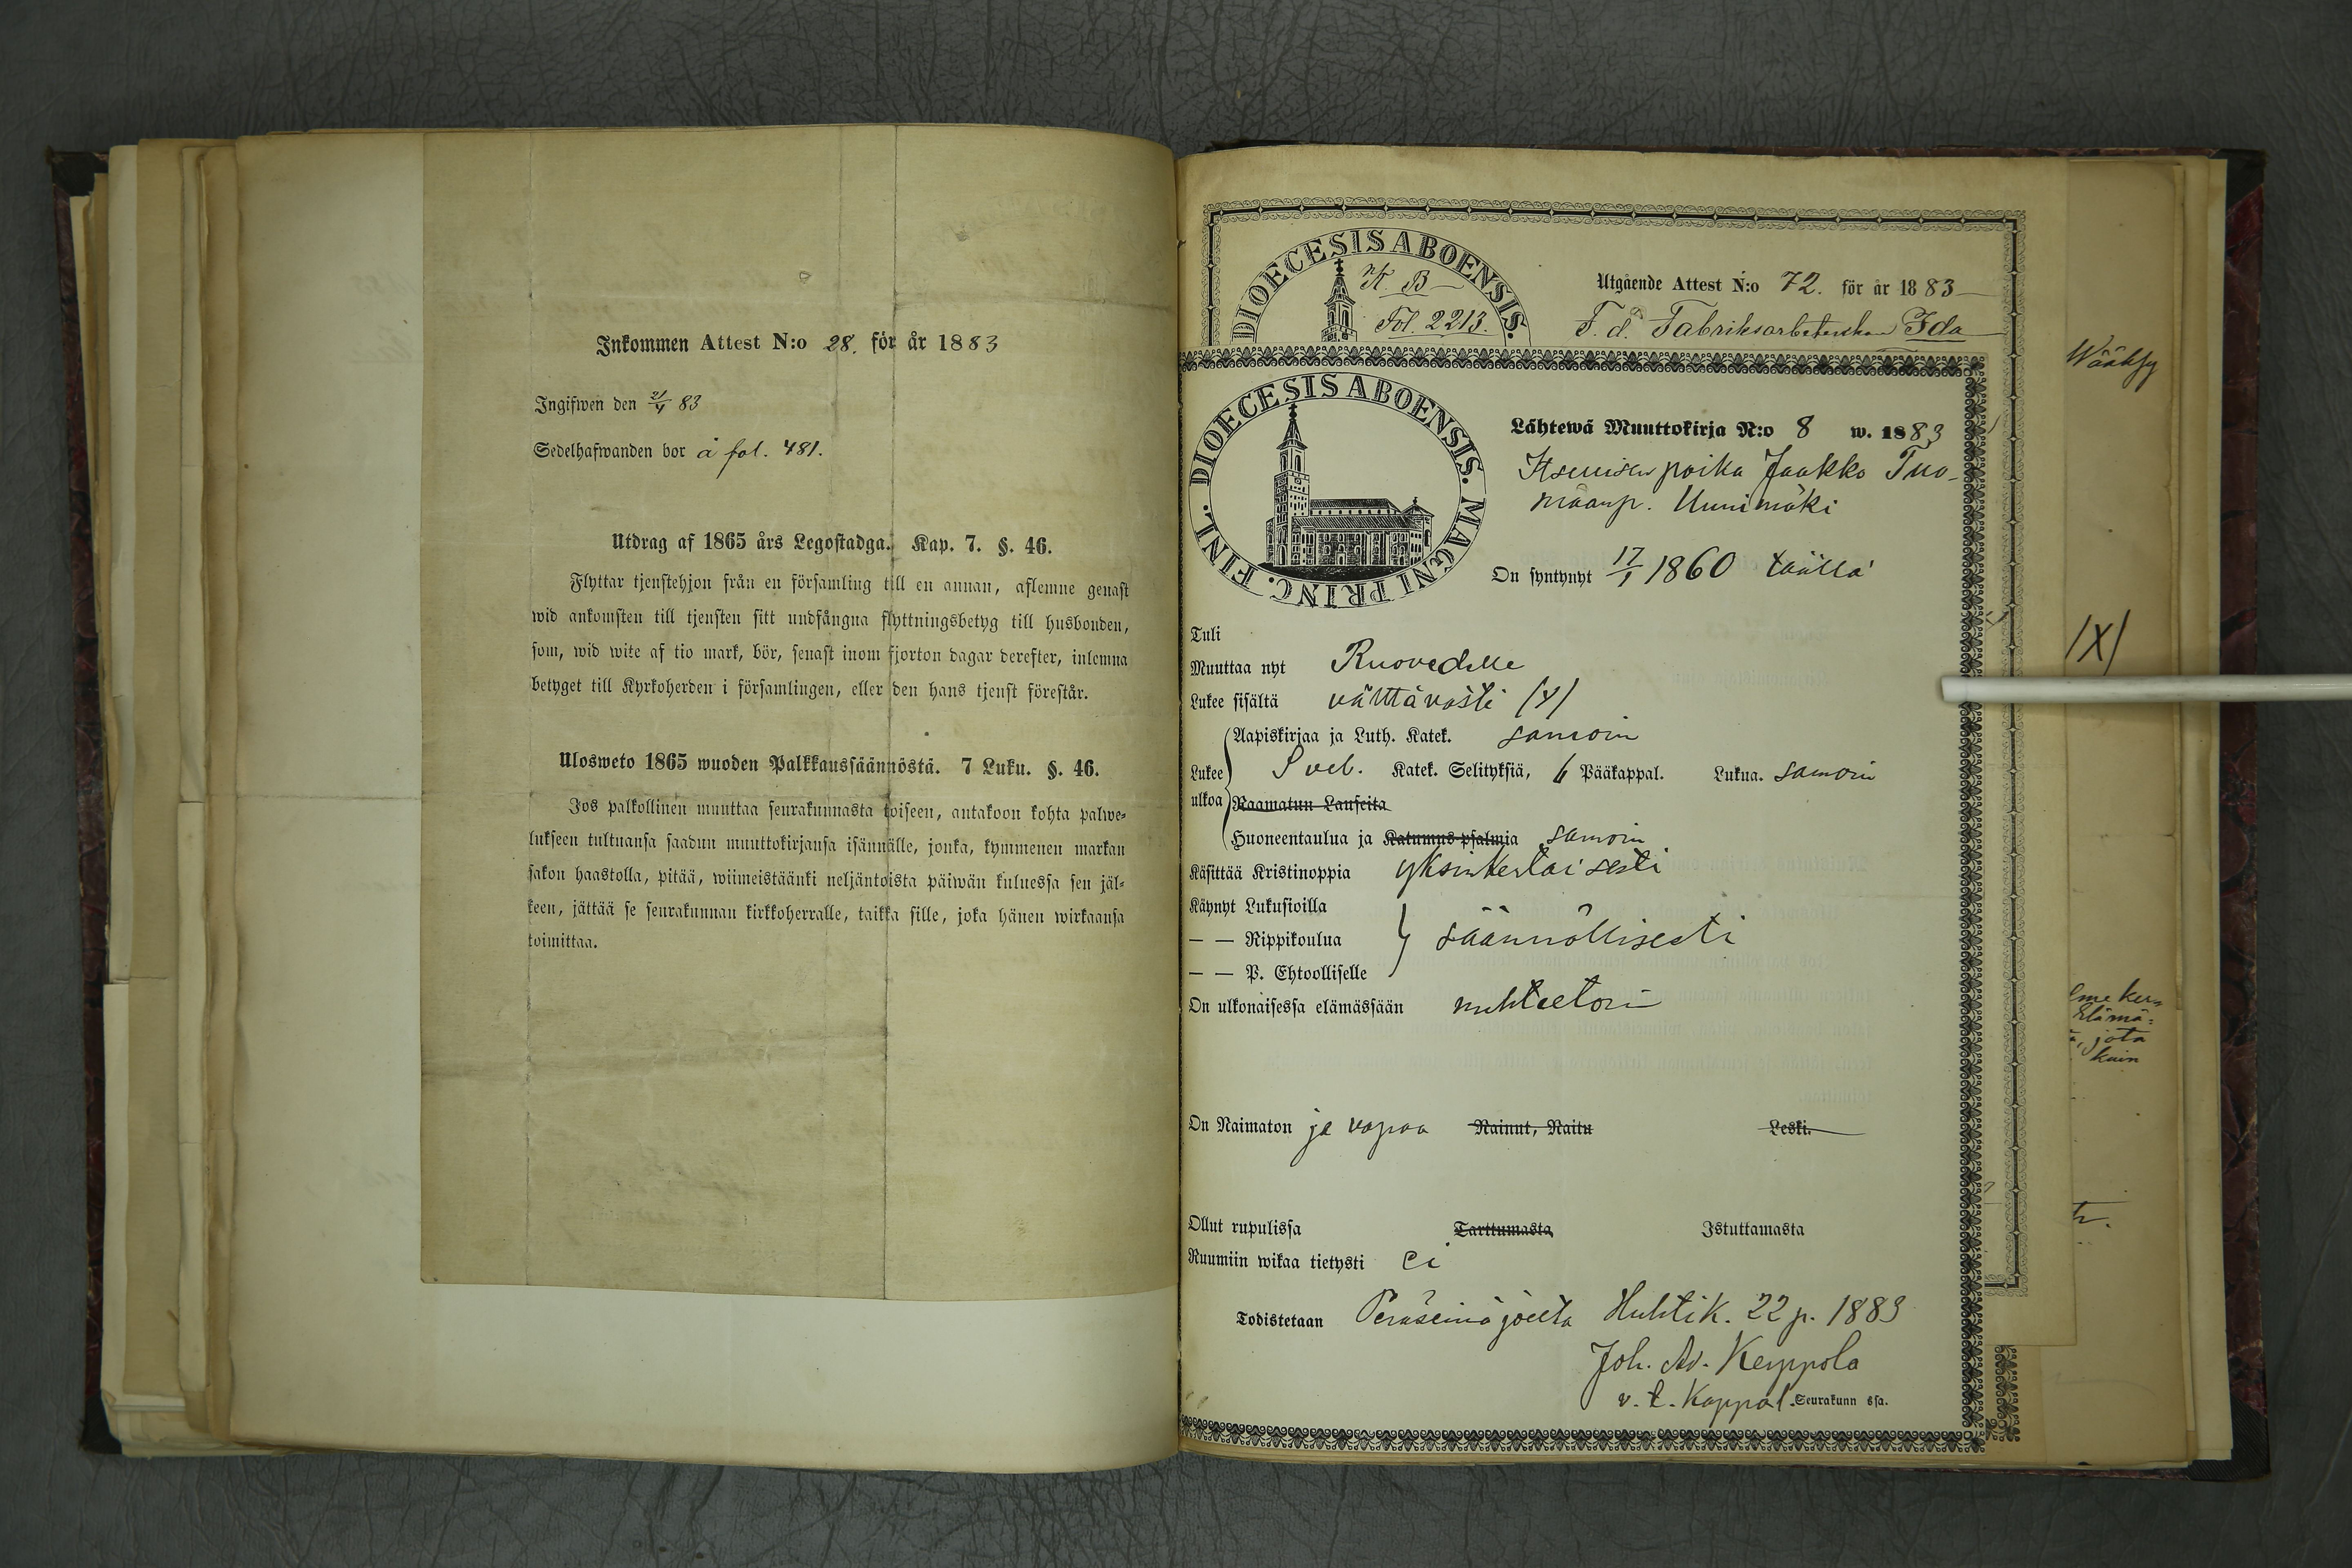 Inkommen Attest N:o 28. för år 1883
Ingifwen den 21/4 83
Sedelhafwanden bor å fol. 481.
Utdrag af 1865 års Legostadga. Kap. 7. §. 46.
Flyttar tjenstehjon från en församling till en annan, aflemne genast
wid ankomsten till tjensten sitt undfångna flyttningsbetyg till husbonden,
som, wid wite af tio mark, bör, senast inom fjorton dagar derefter, inlemna
betyget till Kyrkoherden i församlingen, eller den hans tjenst förestår.
Ulosweto 1865 wuoden Palkkaussäännöstä. 7 Luku. §. 46.
Jos palkollinen muuttaa seurakunnasta toiseen, antakoon kohta palwe-
lukseen tultuansa saadun muuttokirjansa isännälle, jonka, kymmenen markan
sakon haastolla, pitää, wiimeistäänki neljäntoista päiwän kuluessa sen jäl-
keen, jättää se seurakunnan kirkkoherralle, taikka sille, joka hänen wirkaansa
toimittaa.
DIOECESIS ABOENSIS.
B
Fol. 2213.
Utgående Attest N:o 72. för år 1883
F. d. Fabriksarbeterskan Ida
DIOECESIS ABOENSIS. MAGNI PRINC. FINL.
Lähtewä Muuttokirja N:o 8 w. 1883
Itsenisen poika Jaakko Tuo-
maanp. Uunimäki
On syntynyt 17/1 1860 täällä
Tuli
Muuttaa nyt Ruovedelle
Lukee sisältä välttävästi /4/
Aapiskirjaa ja Luth. Katek. samoin
Lukee ulkoa Svel. Katek. Selityksiä, 6 Pääkappal. Lukua. samoin
Raamatun Lauseita
Huoneentaulua ja Katumus-psalmia samoin
Käsittää Kristinoppia yksinkertaisesti
Käynyt Lukusioilla
— — Rippikoulua säännöllisesti
— — P. Ehtoolliselle
On ulkonaisessa elämässään nuhteeton
On Naimaton ja vapaa Nainut, Naitu Leski.
Ollut rupulissa Tarttumasta Istuttamasta
Ruumiin wikaa tietysti ei
Todistetaan Peräseinäjoelta Huhtik. 22 p. 1883
Joh. Av. Keppola
v. t. Kappal. Seurakunn ssa.
Wääksy
/X/
elämä:
jota
kuin